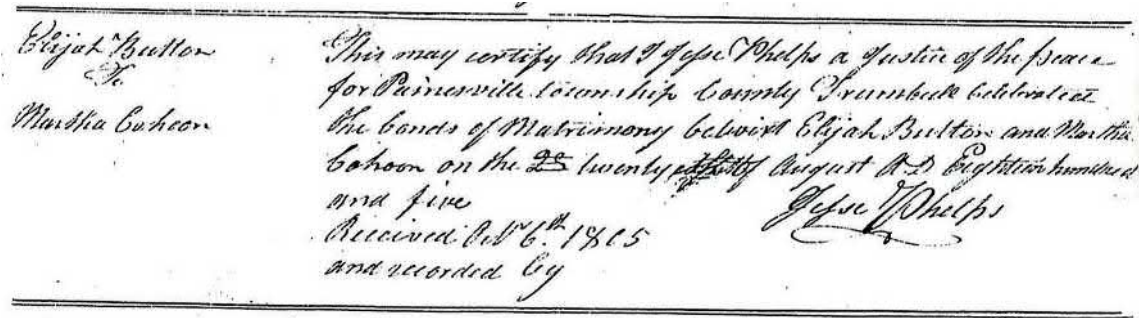 Elijah Button
To
Martha Cahoon
This may certify that I Jesse Phelps a Justice of the peace
for Painesville township County Trumbull Celebrated
the bonds of Matrimony betwixt Elijah Button and Martha
Cohoon on the twenty of August A D Eighteen hundred
and five
Jesse Phelps
Received Octr 6th 1805
and recorded by